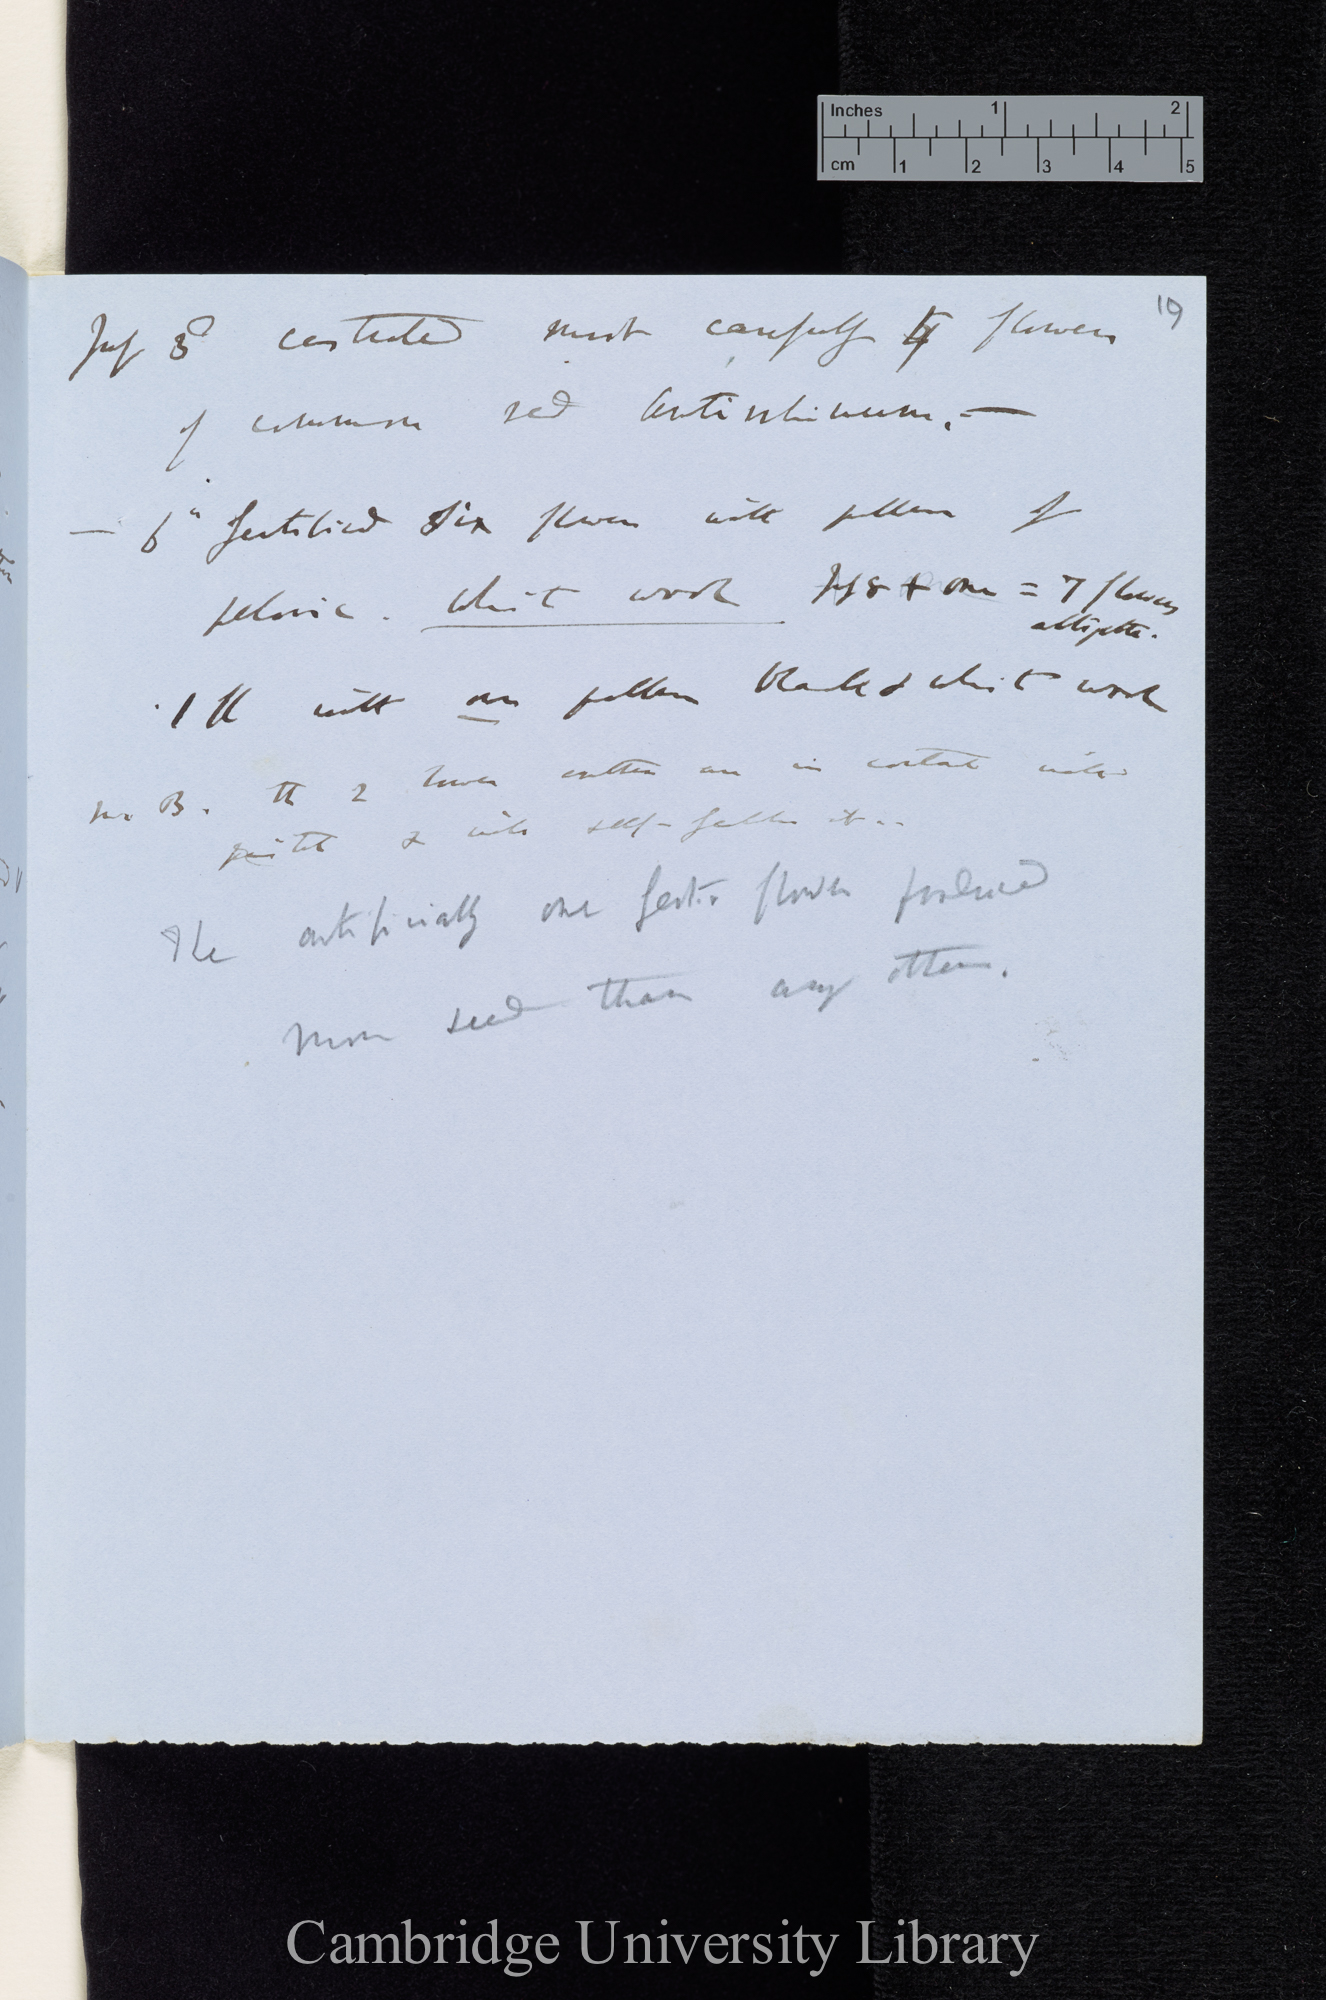 Inches 1 2
cm 1 2 3 4 5
19
July 3d castrated most carefully flowers
of common red Antirrhinum. —
— 6th fertilised Six flowers with pollen of
peloric. White wool July 8 + one = 7 flowers
altogether.
1 fl with own pollen black & white wool
N. B. the 2 lower anthers are in contact with
pistil & with self-pollen it
The artificially one fert. flower produced
more seed than any others.
Cambridge University Library